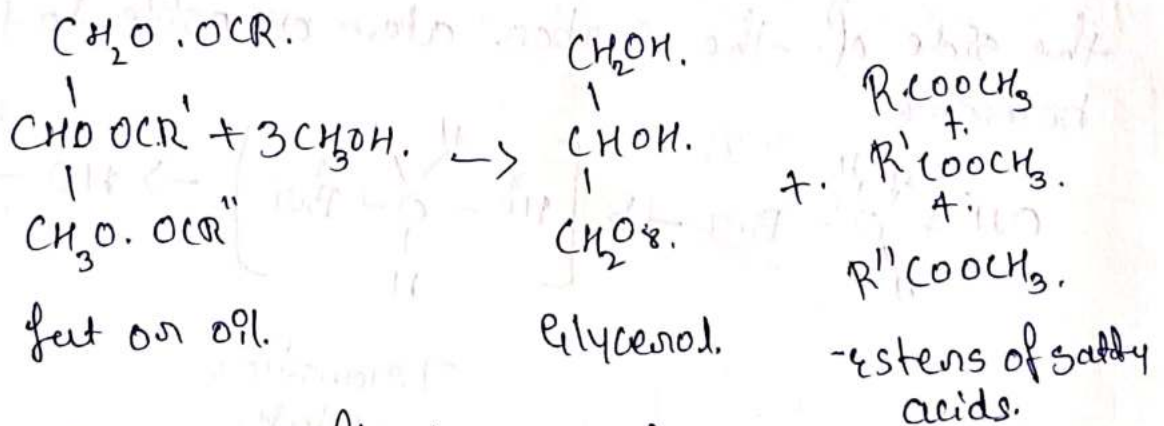 CH₂O . OCR.
|
CHO OCR' + 3CH₃OH. ->
|
CH₃O. OCR"
fat or oil.
CH₂OH.
|
CHOH.
|
CH₂O8.
Glycerol.
+.
R.COOCH₃
+.
R'COOCH₃.
+.
R"COOCH₃.
-esters of satty
acids.